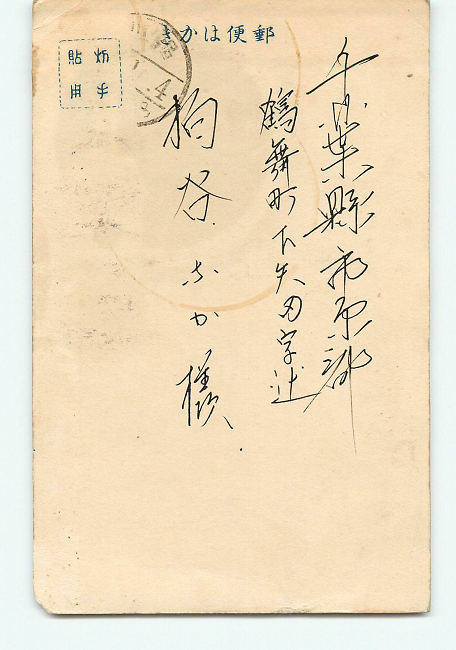 郵便はかき
切手
貼用
千葉縣市原郡
鶴舞町下矢田字辻
桐谷なか様